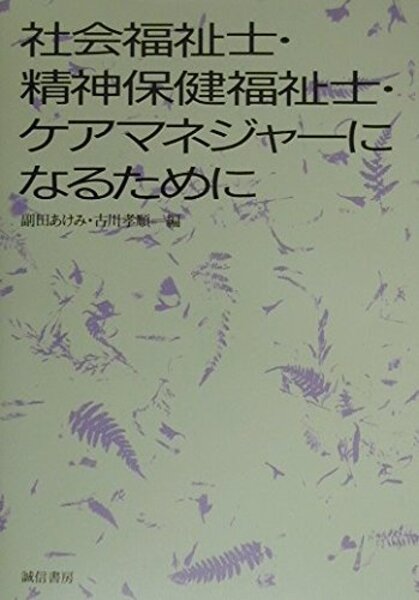 社会福祉士・
精神保健福祉士・
ケアマネジャーに
なるために
副田あけみ・古川孝順―編
誠信書房